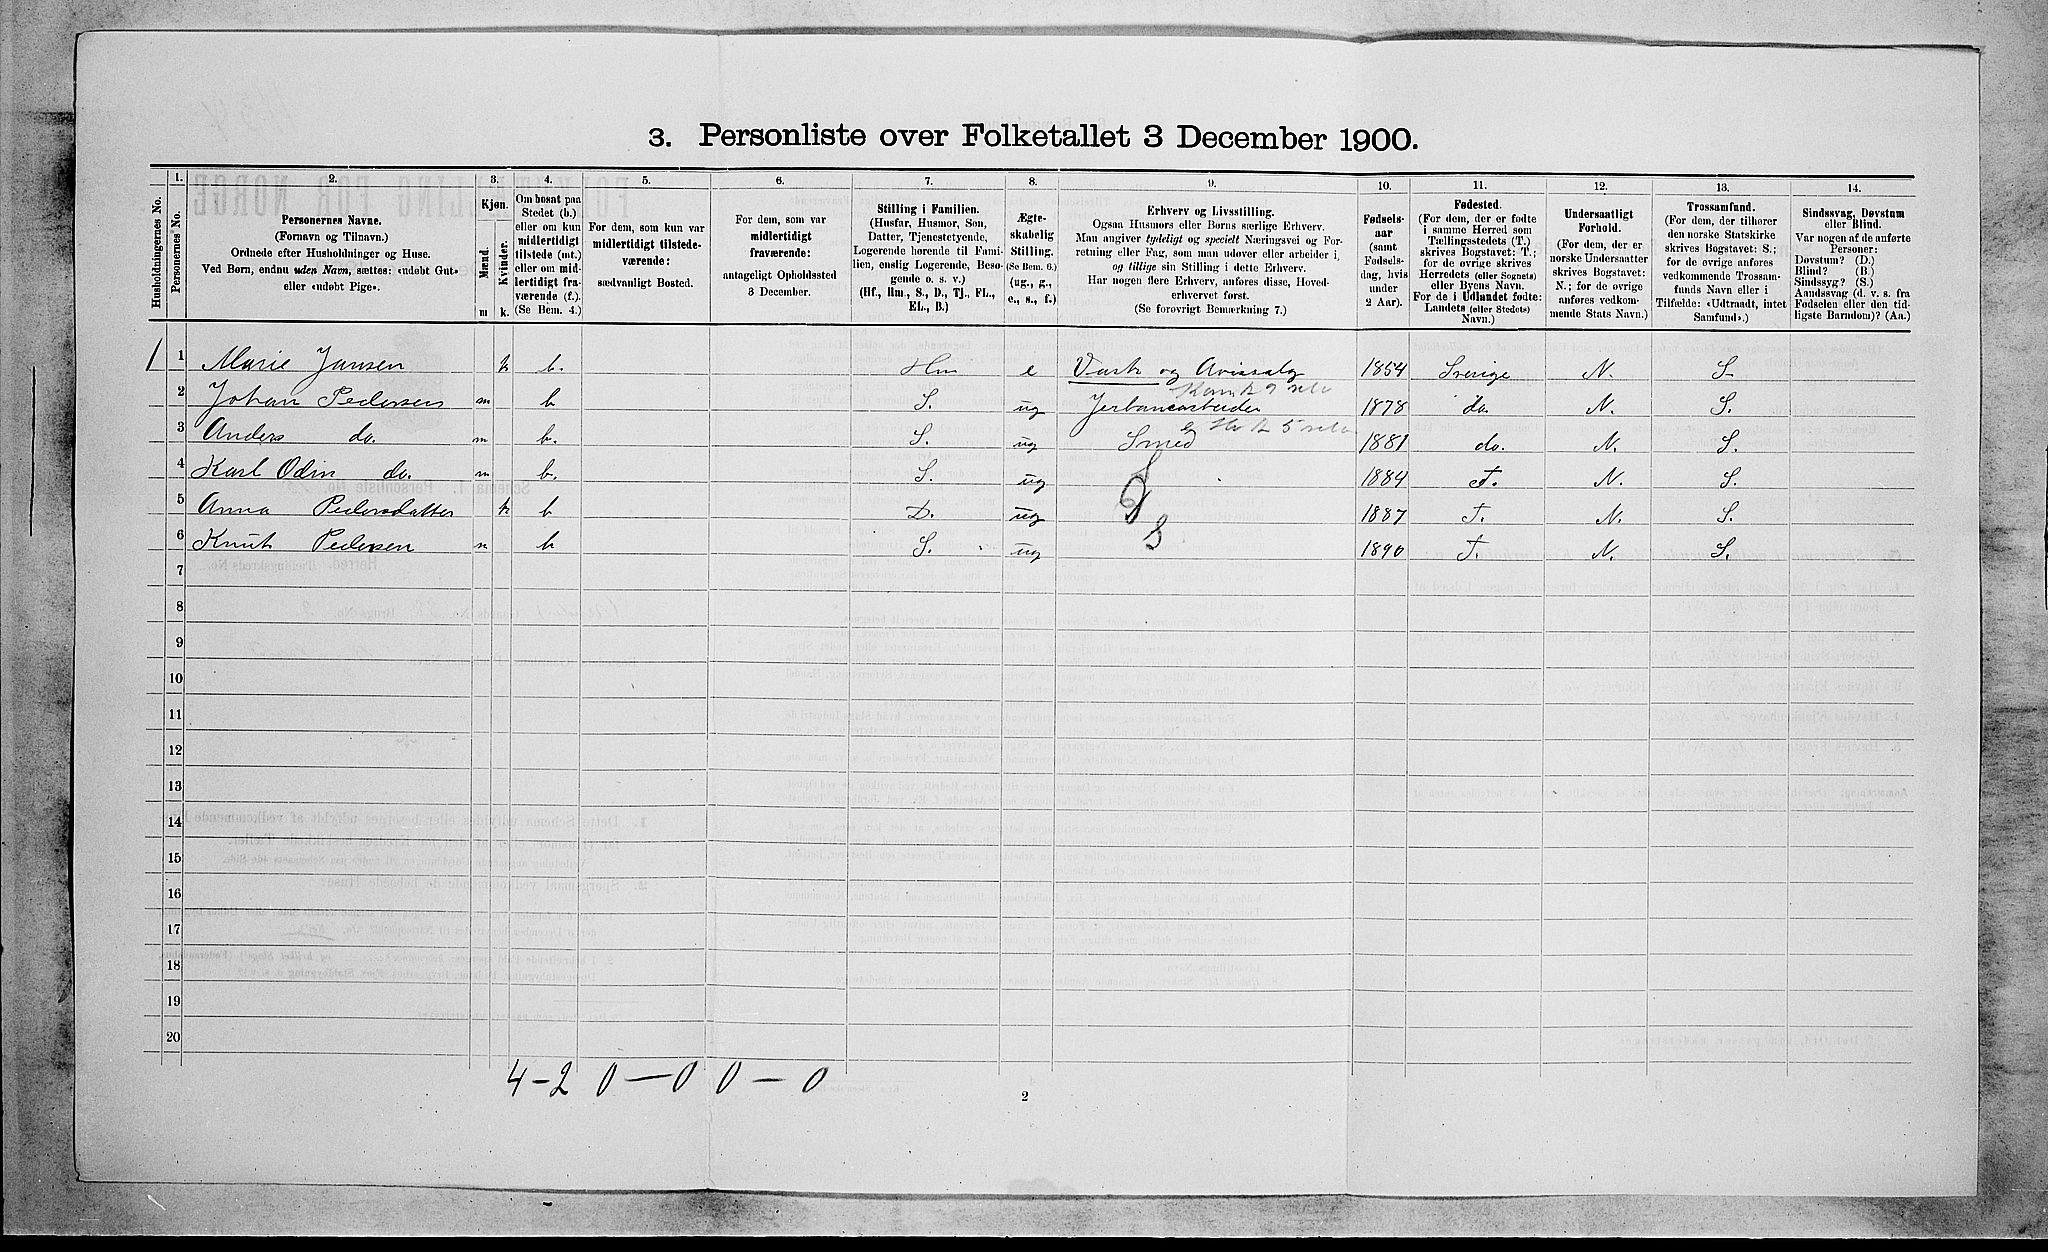 3. Personliste over Folketallet 3 December 1900.
Husholdningernes No.
1. Personernes No.
2. Personernes Navne.
(Fornavn og Tilnavn.)
Ordnede efter Husholdninger og Huse.
Ved Børn, endnu uden Navn, sættes: «udøbt Gut»
eller «udøbt Pige».
3. Kjøn.
Mænd. Kvinder.
m k.
4.
Om bosat paa
Stedet (b.)
eller om kun
midlertidigt
tilstede (mt.)
eller om mid-
lertidigt fra-
værende (f.).
(Se Bem. 4.)
5.
For dem, som kun var
midlertidigt tilstede-
værende:
sædvanligt Bosted.
6.
For dem, som var
midlertidigt
fraværende:
antageligt Opholdssted
3 December.
7.
Stilling i Familien.
(Husfar, Husmor, Søn,
Datter, Tjenestetyende,
Logerende hørende til Fami-
lien, enslig Logerende, Besø-
gende o. s. v.)
(Hf., Hm., S., D., Tj., FL.,
EL., B.)
8.
Ægte-
skabelig
Stilling.
(Se Bem. 6.)
(ug., g.,
e., s., f.)
9.
Erhverv og Livsstilling.
Ogsaa Husmors eller Børns særlige Erhverv.
Man angiver tydeligt og specielt Næringsvei og For-
retning eller Fag, som man udøver eller arbeider i,
og tillige sin Stilling i dette Erhverv.
Har nogen flere Erhverv, anføres disse, Hoved-
erhvervet først.
(Se forøvrigt Bemærkning 7.)
10.
Fødsels-
aar
(samt
Fødsels-
dag, hvis
under
2 Aar).
11.
Fødested.
(For dem, der er fødte
i samme Herred som
Tællingsstedets (T.)
skrives Bogstavet: T.;
for de øvrige skrives
Herredets (eller Sognets)
eller Byens Navn.
For de i Udlandet fødte:
Landets (eller Stedets)
Navn.)
12.
Undersaatligt
Forhold.
(For dem, der er
norske Undersaatter
skrives Bogstavet:
N.; for de øvrige
anføres vedkom-
mende Stats Navn.)
13.
Trossamfund.
(For dem, der tilhører
den norske Statskirke
skrives Bogstavet: S.;
for de øvrige anføres
vedkommende Trossam-
funds Navn eller i
Tilfælde: «Udtraadt, intet
Samfund».)
14.
Sindssvag, Døvstum
eller Blind.
Var nogen af de anførte
Personer:
Døvstum? (D.)
Blind? (B.)
Sindssyg? (S.)
Aandssvag (d. v. s. fra
Fødselen eller den tid-
ligste Barndom)? (Aa.)
1 1 Marie Jansen k b. Hm e Vask og Avissalg 1854 Sverige N. S.
2 Johan Pedersen m b S. ug Jerbanearbeider 1878 do. N. S.
3 Anders do. m b. S. ug Smed 1881 do. N. S.
4 Karl Odin do. m b. S. ug 1884 T. N. S.
5 Anna Pedersdatter k b D. ug 1887 T. N. S.
6 Knut Pedersen m b S. ug 1890 T. N. S.
7
8
9
10
11
12
13
14
15
16
17
18
19
20
4 - 2 0 - 0 0 - 0
2